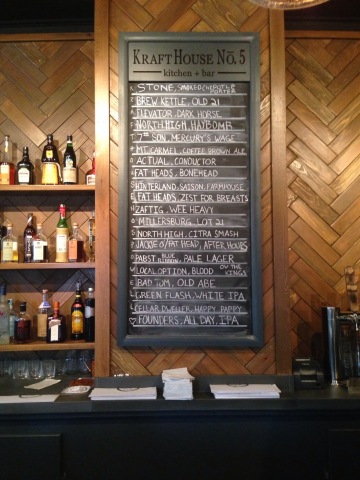 KRAFTHOUSE NO. 5
kitchen + bar
STONE, SMOKED CHIPOTLE PORTER
BREW KETTLE, OLD 21
ELEVATOR, DARK HORSE
NORTH HIGH, HAYBOMB
7TH SON, MERCURY'S WAGE
MT. CARMEL, COFFEE BROWN ALE
ACTUAL, CONDUCTOR
FAT HEADS, BONEHEAD
HINTERLAND, SAISON, FARMHOUSE
FAT HEADS, ZEST FOR BREASTS
ZAFTIG, WEE HEAVY
MILLERSBURG, LOT 21
NORTH HIGH, CITRA SMASH
JACKIE O/FAT HEAD, AFTER HOURS
PABST BLUE RIBBON, PALE LAGER
LOCAL OPTION, BLOOD OV THE KINGS
BAD TOM, OLD ABE
GREEN FLASH, WHITE IPA
CELLAR DWELLER, HAPPY PAPPY
FOUNDERS, ALL DAY, IPA